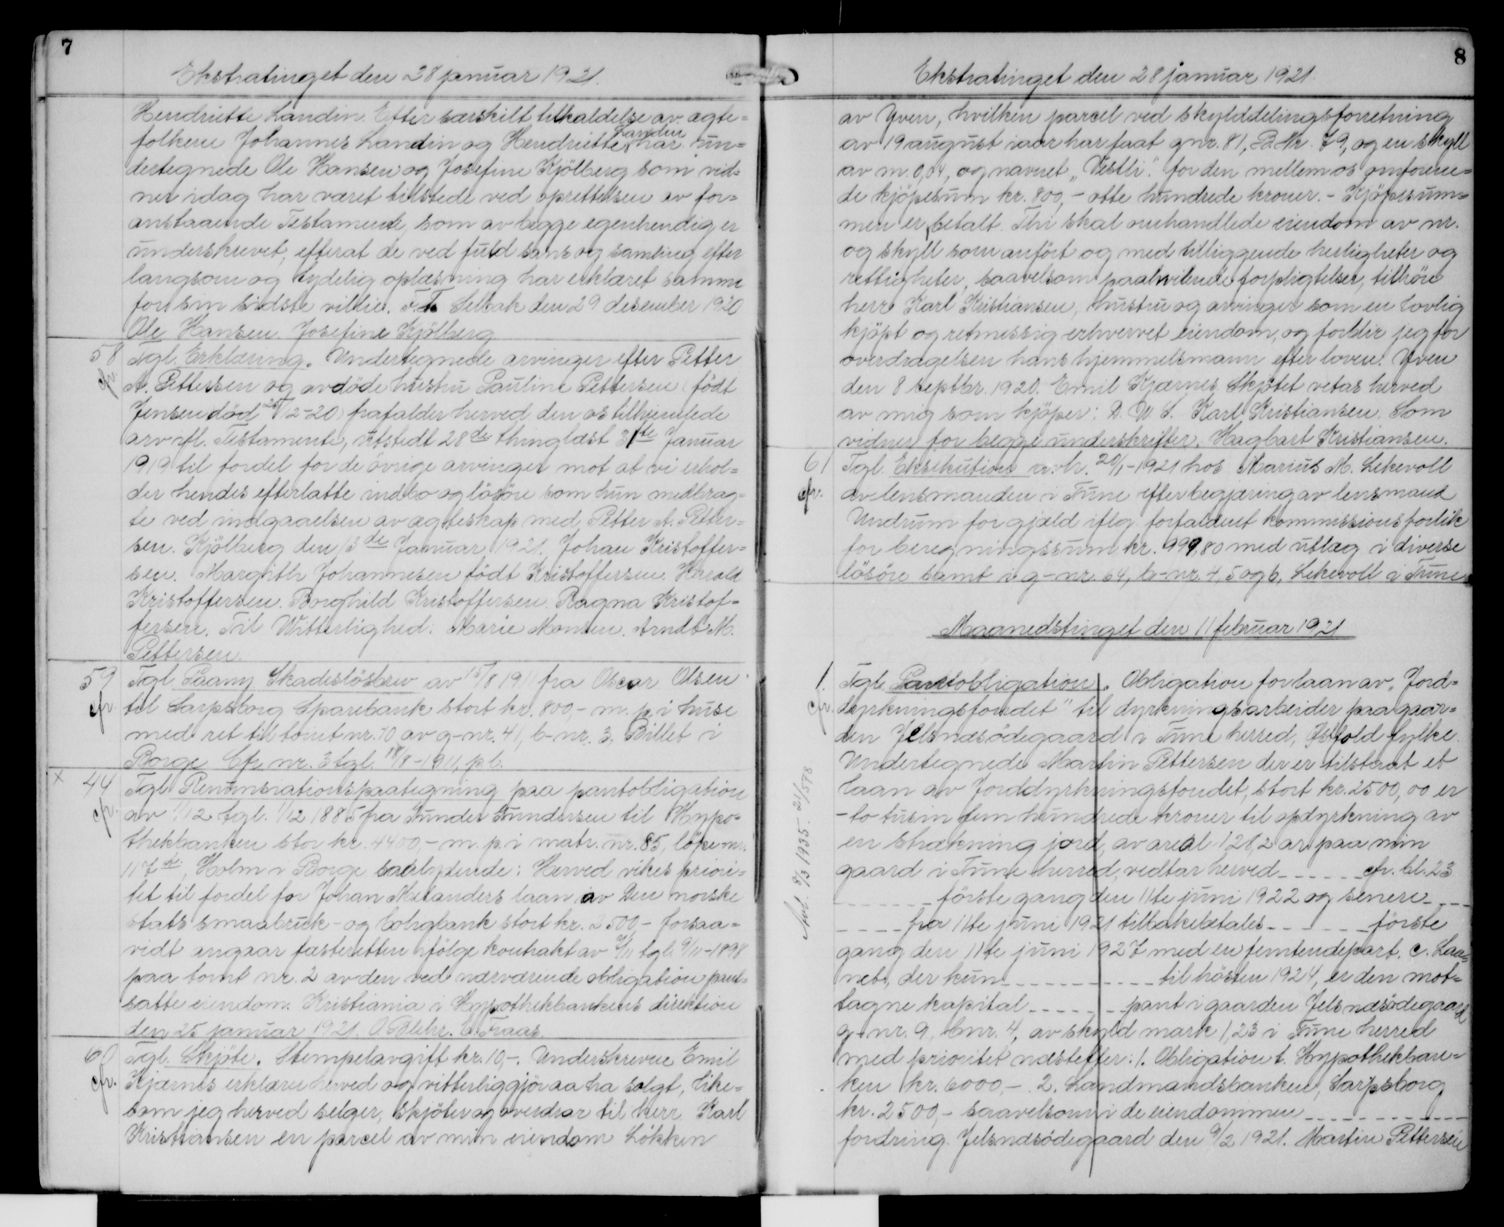 7
Ekstratinget den 28 januar 1921.
Hendriette Landin. Efter særskilt tilkaldelse av ægte-
folkene Johannes Landin og Hendriette Landin har un-
dertegnede Ole Hansen og Josefine Kjölberg som vid-
ner idag har været tilstede ved oprettelsen av for-
anstaaende Testamente, som av begge egenhendig er
underskrevet, efterat de ved fuld sans og samling efter
langsom og tydelig oplæsning har erklæret samme
for sin sidste villie. Selbak den 29 desember 1920
Ole Hansen Josefine Kjölberg
58 Tgl. Erklæring. Undertegnede arvinger efter Petter
cfr. A. Pettersen og avdöde hustru Pauline Pettersen (födt
Jensen död /12-20) frafalder herved den os tilkjemlede
arv ifl. Testamente, utstedt 28de thinglæst 31te Januar
1919 til fordel for de övrige arvinger mot at vi erhol-
der hendes efterlatte indbo og lösöre som hun medbrag-
te ved indgaaelsen av ægteskap med Petter A. Petter-
sen. Kjölberg den 13de Januar 1921. Johan Kristoffer-
sen. Margith Johannesen födt Kristoffersen. Harald
Kristoffersen. Borghild Kristoffersen. Ragna Kristof-
fersen. Til Witterlighed: Marie Monsen. Arndt M.
Pettersen.
59 Tgl. Paany Skadeslösbrev av 15/8 1911 fra Oscar Olsen
cfr til Sarpsborg Sparebank stort kr. 800,- m. p. i huse
med ret til tomt nr. 70 av g-nr. 41, b-nr. 3, Billet i
Borge. Cfr. nr. 3 tgl. 18/8-1911, pl.
x 44 Tgl. Renunsiationspaategning paa pantobligation
cfr. av 1/12 tgl. 1/12 1885 fra Gunder Gundersen til Hypo-
thekbanken stor kr. 4400,- m. p. i matr. nr. 85, löpe nr.
117, Holm i Borge saalydende: Herved vikes priori-
tet til fordel for Johan Melanders laan av Den norske
stats smaabruk- og boligbank stort kr. 2500,- forsaa-
vidt angaar fæsteretten ifölge kontrakt av tgl. 9/11-1898
paa tomt nr. 2 av den ved nærværende obligation pant-
satte eiendom. Kristiania i Hypothekbankens direktion
den 25 januar 1921.
60 Tgl. Skjöte. Stempelavgift kr. 10,-. Underskrevne Emil
cfr. Kjærnes erklærer herved og vitterliggjör aa ha solgt, like-
som jeg herved selger, skjöter og overdrar til herr Karl
Kristiansen en parcel av min eiendom Lökken
8
Ekstratinget den 28 januar 1921
av Yven, hvilken parcel ved skylddelingsforretning
av 19 august iaar har faat gnr. 81, B.Nr. 79, og en skyll
av m. 0,04, og navnet „Vestli." for den mellem os omforene-
de kjöpesum kr. 800,- otte hundrede kroner. - Kjöpesum-
men er betalt. Thi skal omhandlede eiendom av nr.
og skyll som anfört og med tilliggende herligheter og
rettigheter, saavelsom paahvilende forpligtelser, tilhöre
herr Karl Kristiansen, hustru og arvinger som en lovlig
kjöpt og retmessig erhvervet eiendom, og forblir jeg for
overdragelsen hans hjemmelsmann efter loven. Yven
den 8 septbr. 1920. Emil Kjærnes. Skjötet vetas herved
av mig som kjöper: D. U. S. Karl Kristiansen. Som
vidner for begge underskrifter. Hagbart Kristiansen.
61 Tgl. Eksekution avh. 20/1-1921 hos Marius M. Lekevoll
cfr. av lensmanden i Tune efter begjæring av lensmand
Undrum for gjæld iflg. forfaldent kommissionsforlik
for beregningssum kr. 999,80 med utlæg i diverse
lösöre samt i g-nr. 64, b-nr. 4, 5 og 6, Lekevoll i Tune
Maanedstinget den 11 februar 1921
1. Tgl. Pantobligation. Obligation for laan av „Jord-
cfr. dyrkningsfondet" til dyrkningsarbeider paa gaar-
den Jelsndsödegaard i Tune herred, Östfold fylke.
Undertegnede Martin Pettersen der er tilstaat et
laan av Jorddyrkningsfondet, stort kr. 2500,00 er
- to tusin fem hundrede kroner til opdyrkning av
en strækning jord, av areal 128,2 ar paa min
gaard i Tune herred, vedtar herved _ _ _ _ _ cfr. bl. 23
_ _ _ _ _ förste gang den 11te juni 1922 og senere _ _
_ _ _ fra 11te juni 1921 tilbakebetales _ _ _ _ _ förste
gang den 11te juni 1927 med en femtendepart. c. Laa-
net, der kun _ _ _ _ _ _ til hösten 1924, er den mot-
tagne kapital _ _ _ _ _ pant i gaarden Jelsndsödegaard
g-nr. 9, bnr. 4, av skyld mark 1,23 i Tune herred
med prioritet næstefter: 1. Obligation t. Hypothekban-
ken kr. 6000,-. 2. Landmandsbanken, Sarpsborg
kr. 2500,- saavelsom i de eiendommen _ _ _ _ _ _ _
fordring. Jelsndsödegaard den 9/2 1921. Martin Pettersen
Avl. 9/3 1935. 21/578